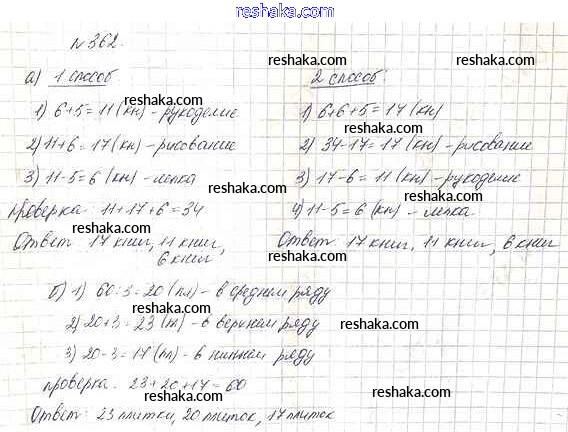 reshaka.com
№362.
а) 1 способ
1) 6+5=11 (кн) - рукоделие
2) 11+6=17 (кн) - рисование
3) 11-5=6 (кн) - лепка
проверка: 11+17+6=34
Ответ: 17 книг, 11 книг,
6 книг
2 способ:
1) 6+6+5=17 (кн)
2) 34-17=17 (кн) - рисование
3) 17-6=11 (кн) - рукоделие
4) 11-5=6 (кн) - лепка
Ответ: 17 книг, 11 книг, 6 книг
б) 1) 60:3=20 (пл) - в среднем ряду
2) 20+3=23 (пл) - в верхнем ряду
3) 20-3=17 (пл) - в нижнем ряду
проверка: 23+20+17=60
Ответ: 23 плитки, 20 плиток, 17 плиток
reshaka.com
reshaka.com
reshaka.com
reshaka.com
reshaka.com
reshaka.com
reshaka.com
reshaka.com
reshaka.com
reshaka.com
reshaka.com
reshaka.com
reshaka.com
reshaka.com